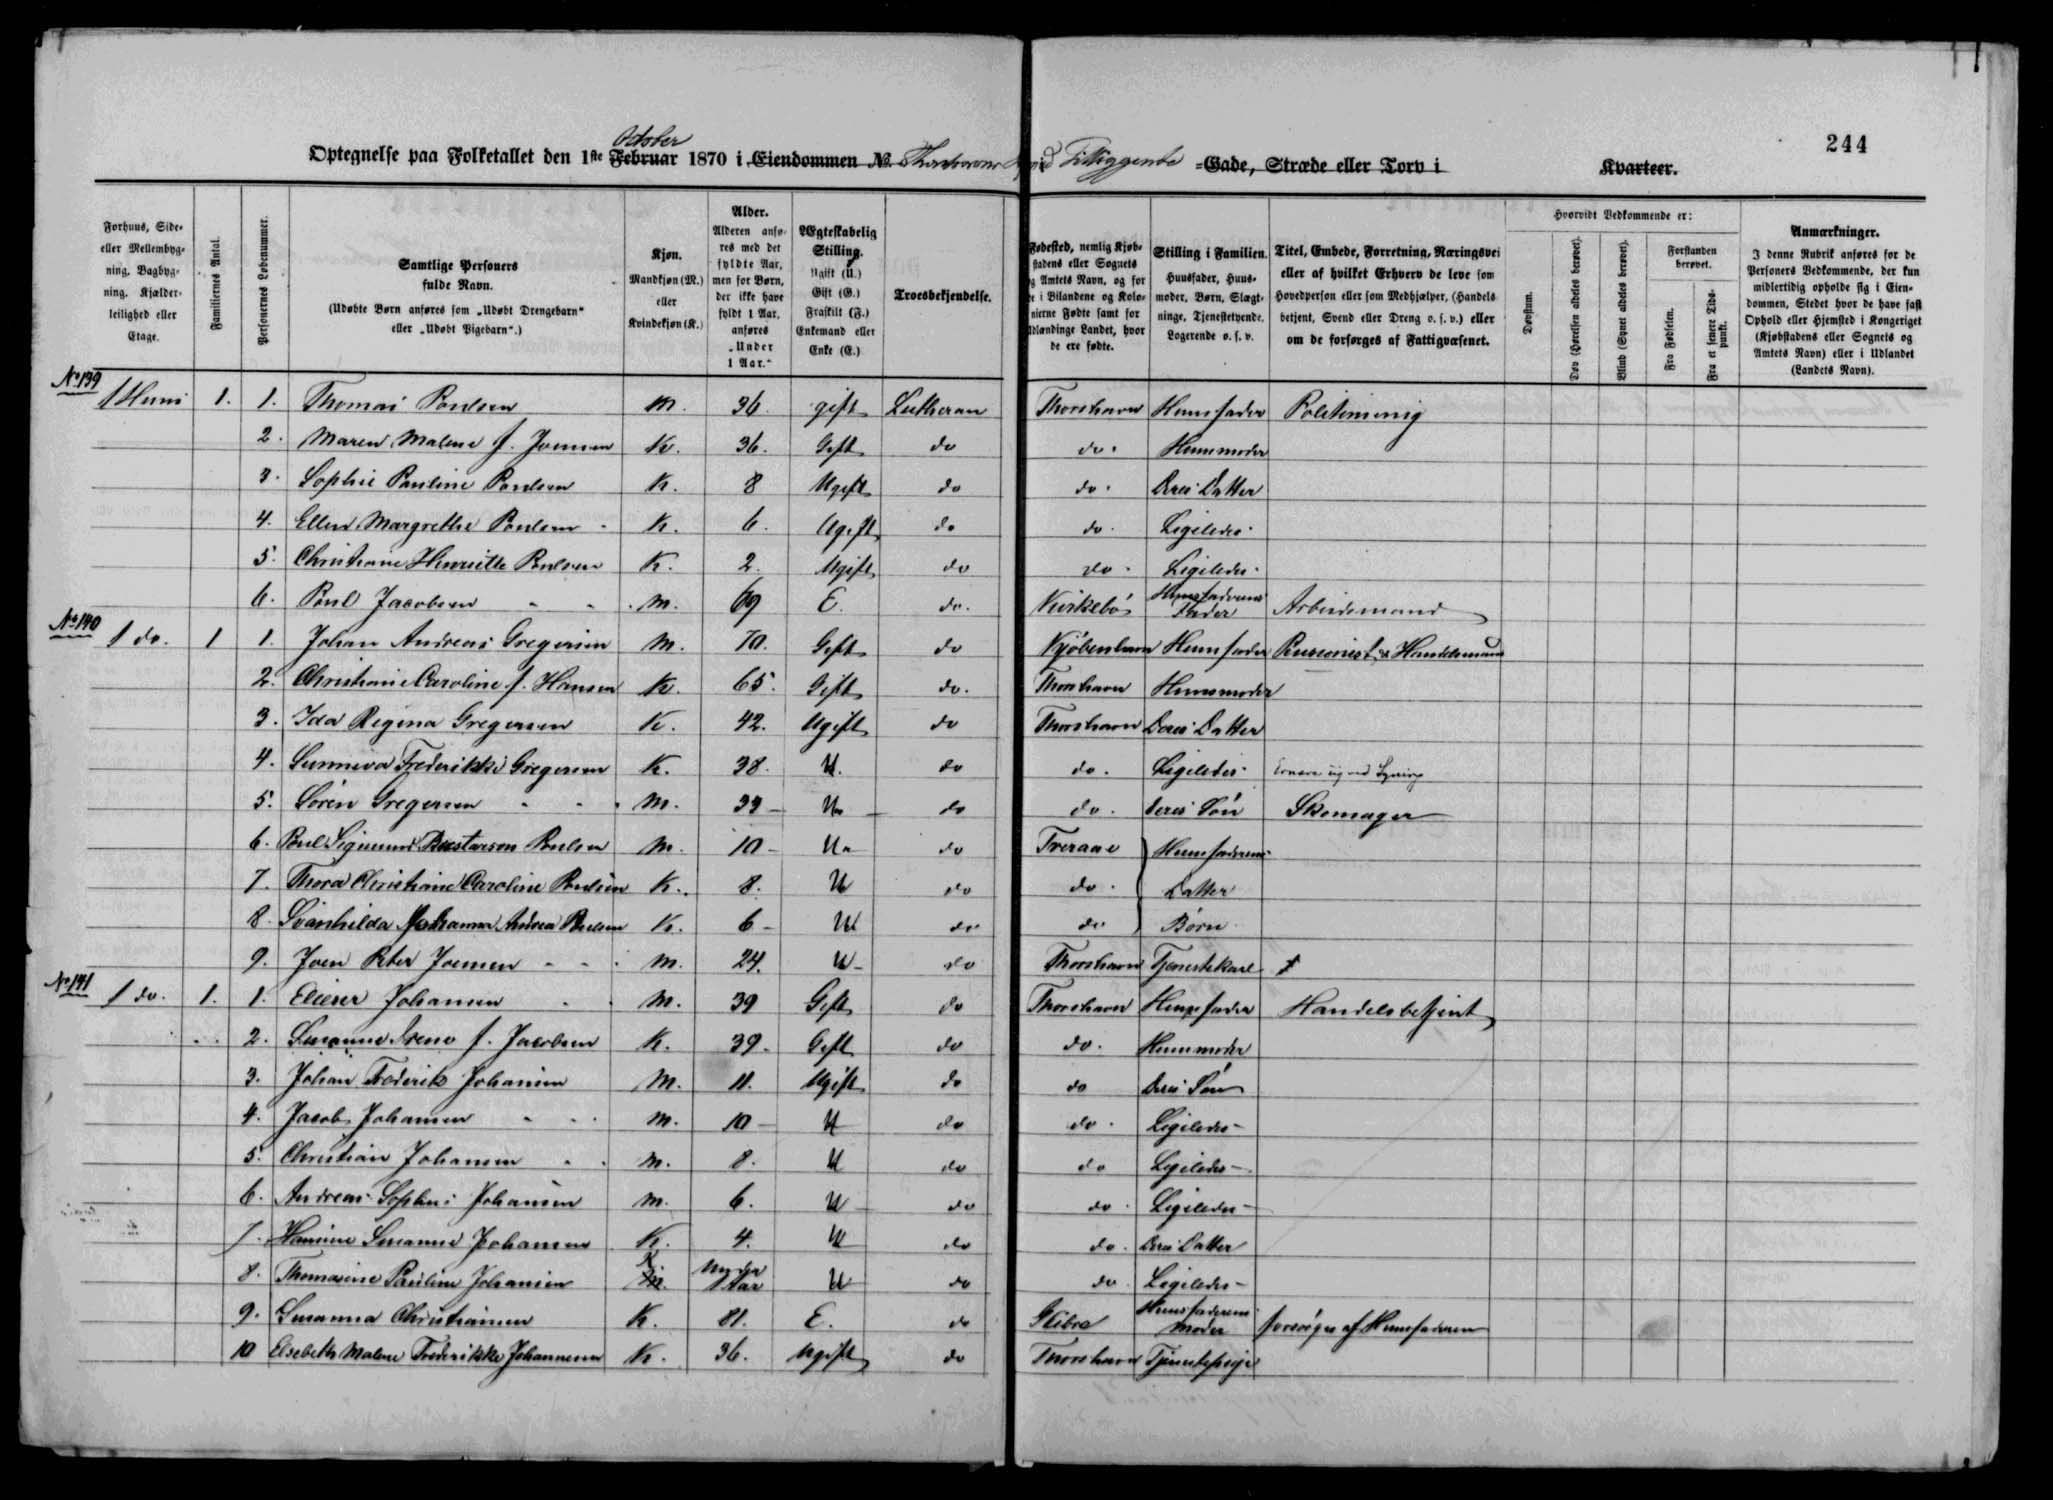 244
October
Optegnelse paa Folketallet den 1ste Februar 1870 i Eiendommen No. Thorshavns Tilliggende =Gade, Stræde eller Torv i Kvarteer.
Forhuus, Side= eller Mellembyg= ning, Bagbyg= ning, Kjælder= leilighed eller Etage.
Familiernes Antal.
Personernes Løbenummer.
Samtlige Personers fulde Navn.
(Udøbte Børn anføres som „Udøbt Drengebarn“ eller „Udøbt Pigebarn“.)
Kjøn.
Mandkjøn (M.) eller Kvindekjøn (K.)
Alder.
Alderen anfø= res med det fyldte Aar, men for Børn, der ikke have fyldt 1 Aar, anføres „Under 1 Aar.“
Ægteskabelig Stilling.
Ugift (U.) Gift (G.) Fraskilt (F.) Enkemand eller Enke (E.)
Troesbekjendelse.
Fødested, nemlig Kjøb= stadens eller Sognets og Amtets Navn, og for de i Bilandene og Kolo= nierne Fødte samt for Udlændinge Landet, hvor de ere fødte.
Stilling i Familien.
Huusfader, Huus= moder, Børn, Slægt= ninge, Tjenestetyende, Logerende o. s. v.
Titel, Embede, Forretning, Næringsvei eller af hvilket Erhverv de leve som Hovedperson eller som Medhjælper, (Handels= betjent, Svend eller Dreng o. s. v.) eller om de forsørges af Fattigvæsenet.
Hvorvidt Vedkommende er:
Døvstum.
Døv (Hørelsen aldeles berøvet).
Blind (Synet aldeles berøvet).
Forstanden berøvet.
Fra Fødselen.
Fra et senere Tids= punkt.
Anmærkninger.
I denne Rubrik anføres for de Personers Vedkommende, der kun midlertidig opholde sig i Eien= dommen, Stedet hvor de have fast Ophold eller Hjemsted i Kongeriget (Kjøbstadens eller Sognets og Amtets Navn) eller i Udlandet (Landets Navn).
No 139
1 Huus 1. 1. Thomas Poulsen M. 36. gift Lutheran Thorshavn Huusfader Politimænig
2. Maren Malene f. Joensen K. 36. Gift do do. Huusmoder
3. Sophie Pauline Poulsen K. 8 Ugift do do. Deres Datter
4. Ellen Margrethe Poulsen K. 6. Ugift do do. Ligeledes
5. Christiane Henriette Poulsen K. 2. Ugift do do. Ligeledes
6. Poul Jacobsen M. 69 E. do. Kirkebø Huusfaderens Fader Arbeidsmand
No 140
1 do. 1 1. Johan Andreas Gregersen M. 70. Gift do Kjøbenhavn Huusfader Pensionist & Handelsmand
2. Christiane Caroline f. Hansen K. 65. Gift do. Thorshavn Huusmoder
3. Ida Regina Gregersen K. 42. Ugift do Thorshavn Deres Datter
4. Sunneva Frederikke Gregersen K. 38. U. do do. Ligeledes Ernære sig ved Syning
5. Sørén Gregersen M. 33 U. do do. deres Søn Skomager
6. Poul Sigmund Poulsen M. 10 U. do Tveraae Huusfaderens
7. Thora Christiane Caroline Poulsen K. 8. U do do. Datter
8. Svanhilda Johanna Andrea Poulsen K. 6 U do do Børn
9. Joen Peter Joensen M. 24. U do Thorshavn Tjenestekarl
No 141
1 do. 1. 1. Elieser Johansen M. 39 Gift do Thorshavn Huusfader Handelsbetjent
2. Susanne f. Jacobsen K. 39. Gift do do. Huusmoder
3. Johan Frederik Johansen M. 11. Ugift do do Deres Søn
4. Jacob Johansen M. 10 U do do. Ligeledes
5. Christian Johansen M. 8. U do do Ligeledes
6. Andreas Sophus Johansen M. 6. U do do. Ligeledes
7. Hansine Susanne Johansen K. 4. U do do. Deres Datter
8. Thomasine Pauline Johansen K. M. Under 1 Aar U do do. Ligeledes
9. Susanna Christiansen K. 81. E. do Glibre Huusfaderens Moder forsørges af Huusfaderen
10 Elsebeth Malene Frederikke Johannesen K. 36. Ugift do Thorshavn Tjenestepige